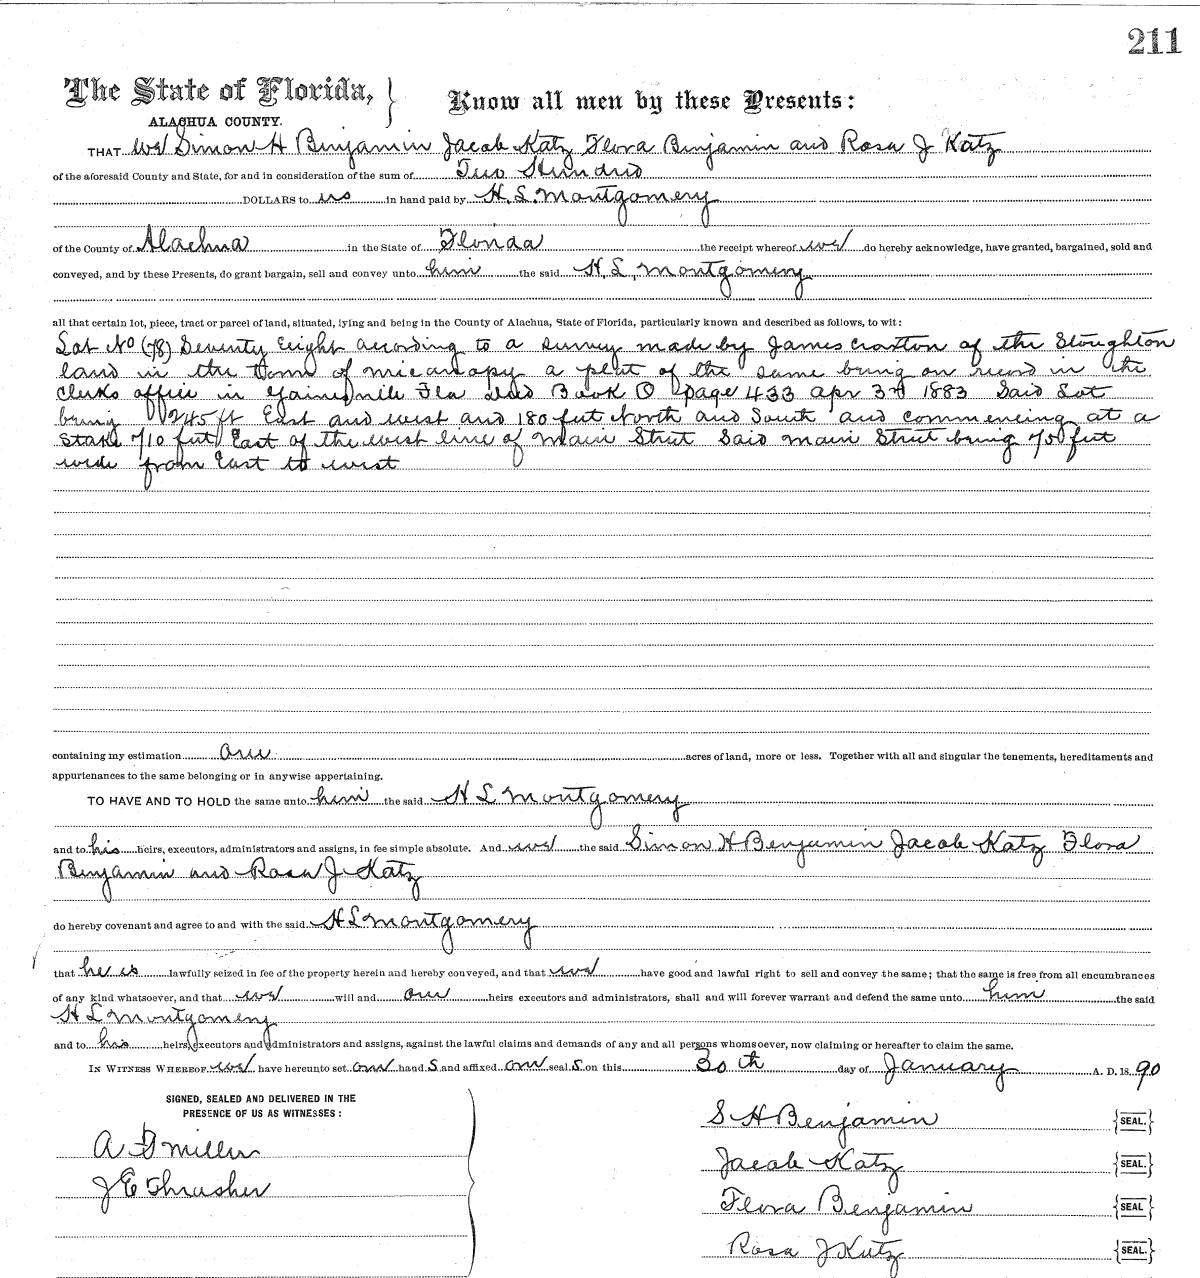 211
The State of Florida,
Know all men by these Presents:
ALACHUA COUNTY.
THAT we Simon H Benjamin Jacob Katz Flora Benjamin and Rosa J Katz
of the aforesaid County and State, for and in consideration of the sum of Two Hundred
DOLLARS to us in hand paid by H. L. Montgomery
of the County of Alachua in the State of Florida the receipt whereof we do hereby acknowledge, have granted, bargained, sold and
conveyed, and by these Presents, do grant bargain, sell and convey unto him the said H. L. Montgomery
all that certain lot, piece, tract or parcel of land, situated, lying and being in the County of Alachua, State of Florida, particularly known and described as follows, to wit:
Lot No (78) Seventy Eight according to a survey made by James Croxton of the Stoughton
land in the Town of Micanopy a plat of the same being on record in the
clerks office in Gainesville Fla Deed Book O page 433 apr 3rd 1883 Said Lot
being 245 ft East and west and 180 feet North and South and commencing at a
stake 710 feet East of the west line of Main Street Said main Street being 70 feet
wide from East to west
containing my estimation one acres of land, more or less. Together with all and singular the tenements, hereditaments and
appurtenances to the same belonging or in anywise appertaining.
TO HAVE AND TO HOLD the same unto him the said H L Montgomery
and to his heirs, executors, administrators and assigns, in fee simple absolute. And we the said Simon H Benjamin Jacob Katz Flora
Benjamin and Rosa J Katz
do hereby covenant and agree to and with the said H L Montgomery
that he is lawfully seized in fee of the property herein and hereby conveyed, and that we have good and lawful right to sell and convey the same; that the same is free from all encumbrances
of any kind whatsoever, and that we will and our heirs executors and administrators, shall and will forever warrant and defend the same unto him the said
H L Montgomery
and to his heirs, executors and administrators and assigns, against the lawful claims and demands of any and all persons whomsoever, now claiming or hereafter to claim the same.
IN WITNESS WHEREOF we have hereunto set our hand s and affixed our seal s on this 30th day of January A. D. 18 90
SIGNED, SEALED AND DELIVERED IN THE
PRESENCE OF US AS WITNESSES:
S H Benjamin SEAL.
A Miller
Jacob Katz SEAL.
J E Thrasher
Flora Benjamin SEAL
Rosa J Katz SEAL.